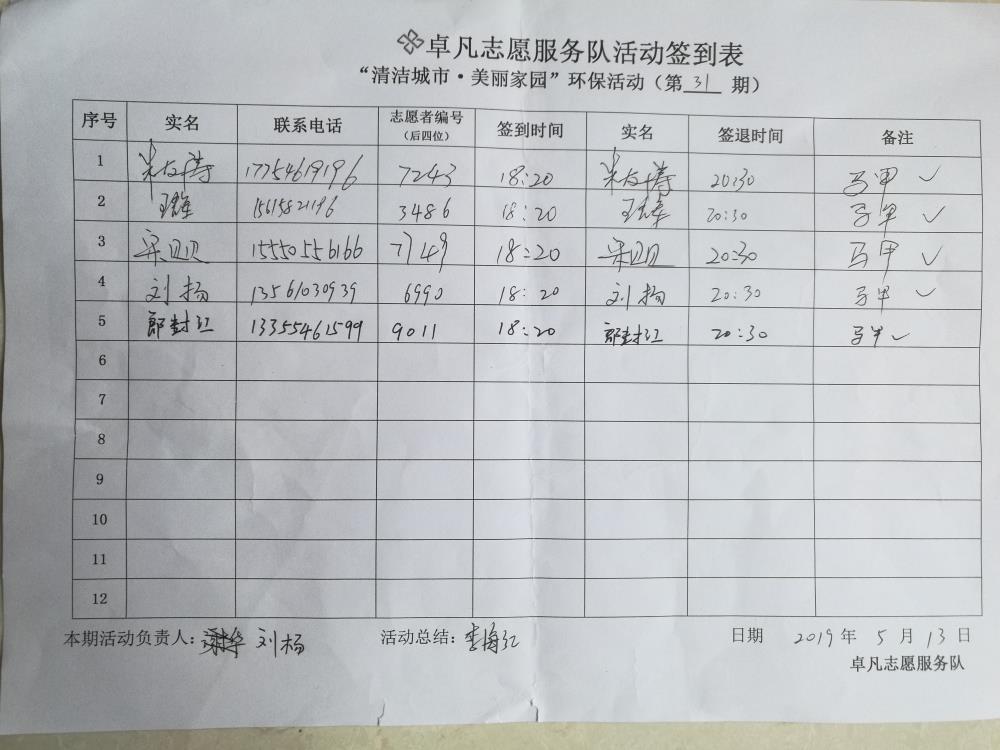 卓凡志愿服务队活动签到表
“清洁城市·美丽家园”环保活动（第 31 期）
序号 实名 联系电话 志愿者编号（后四位） 签到时间 实名 签退时间 备注
1 17754619196 7243 18:20 20:30 马甲 ✓
2 15615821196 3486 18:20 20:30 马甲 ✓
3 宋贝贝 15550556166 7749 18:20 宋贝贝 20:30 马甲 ✓
4 刘杨 13561030939 6990 18:20 刘杨 20:30 马甲 ✓
5 13355461599 9011 18:20 20:30 马甲 ✓
6
7
8
9
10
11
12
本期活动负责人： 刘杨 活动总结：李海红 日期 2019 年 5 月 13 日
卓凡志愿服务队